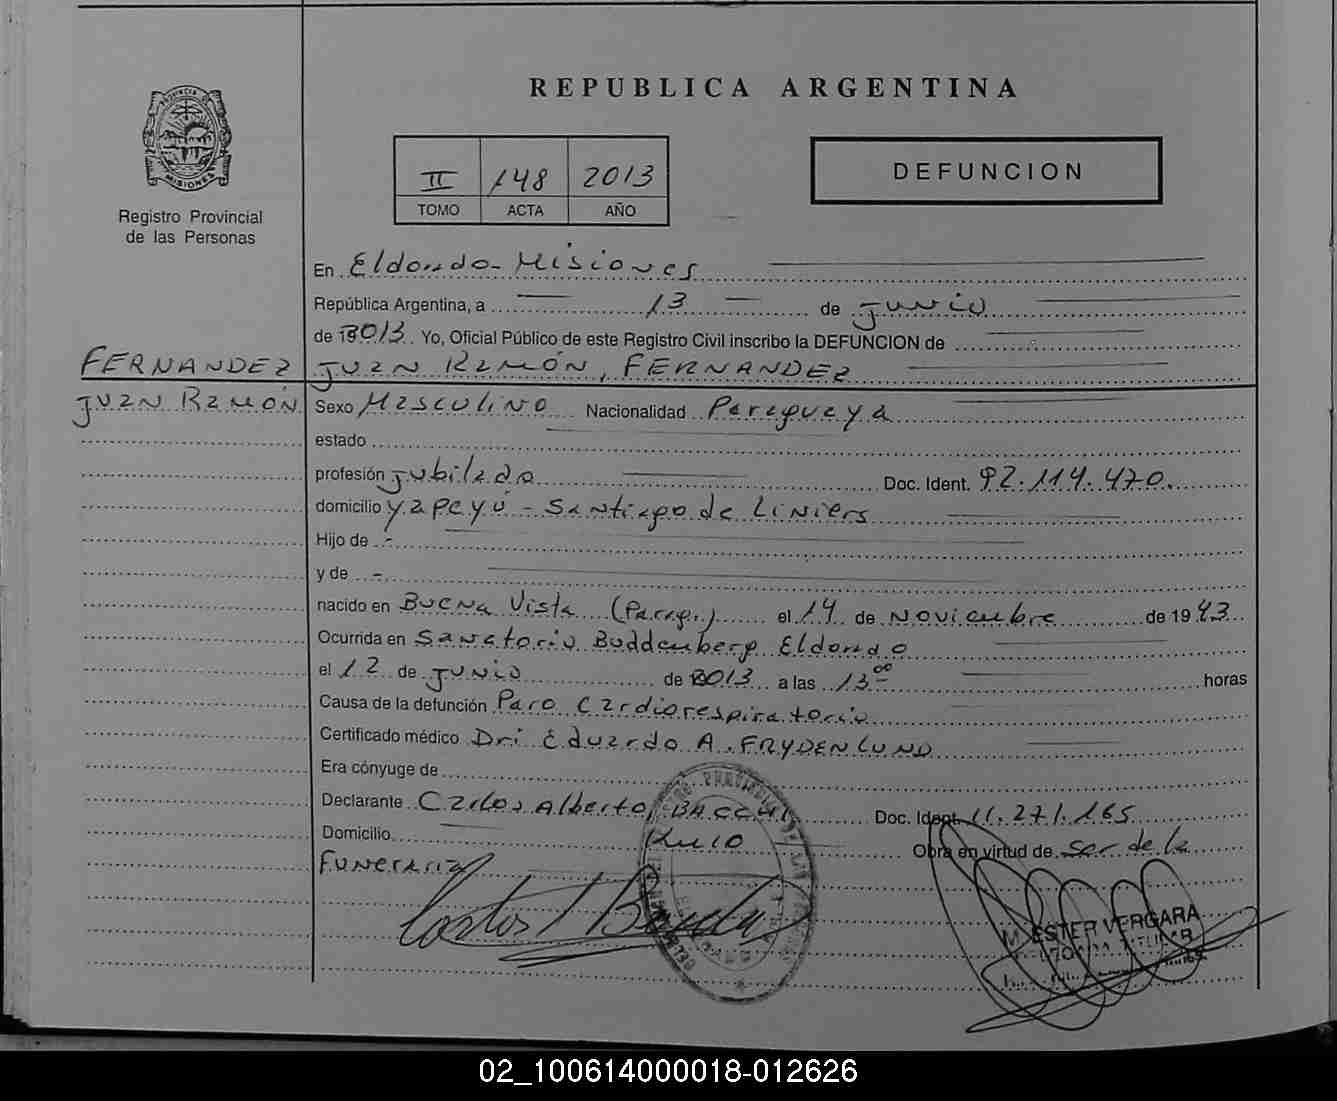 PROVINCIA DE
MISIONES
Registro Provincial
de las Personas
REPUBLICA ARGENTINA
II 148 2013
TOMO ACTA AÑO
DEFUNCION
En Eldorado - Misiones
República Argentina, a 13 de Junio
de 2013 Yo, Oficial Público de este Registro Civil inscribo la DEFUNCION de
FERNANDEZ
JUAN RAMÓN
JUAN RAMÓN, FERNANDEZ
Sexo Masculino Nacionalidad Paraguaya
estado
profesión Jubilado Doc. Ident. 92.114.470.
domicilio Yapeyú - Santiago de Liniers
Hijo de -
y de -
nacido en Buena Vista (Parag.) el 14 de Noviembre de 1943
Ocurrida en Sanatorio Buddenberg Eldorado
el 12 de Junio de 2013 a las 13 00 horas
Causa de la defunción Paro Cardiorespiratorio
Certificado médico Dr: Eduardo A. FRYDENLUND
Era cónyuge de
Declarante Carlos Alberto, Doc. Ident. 11.271.165
Domicilio Obra en virtud de ser de la
Funeraria
M. ESTER VERGARA
02_100614000018-012626